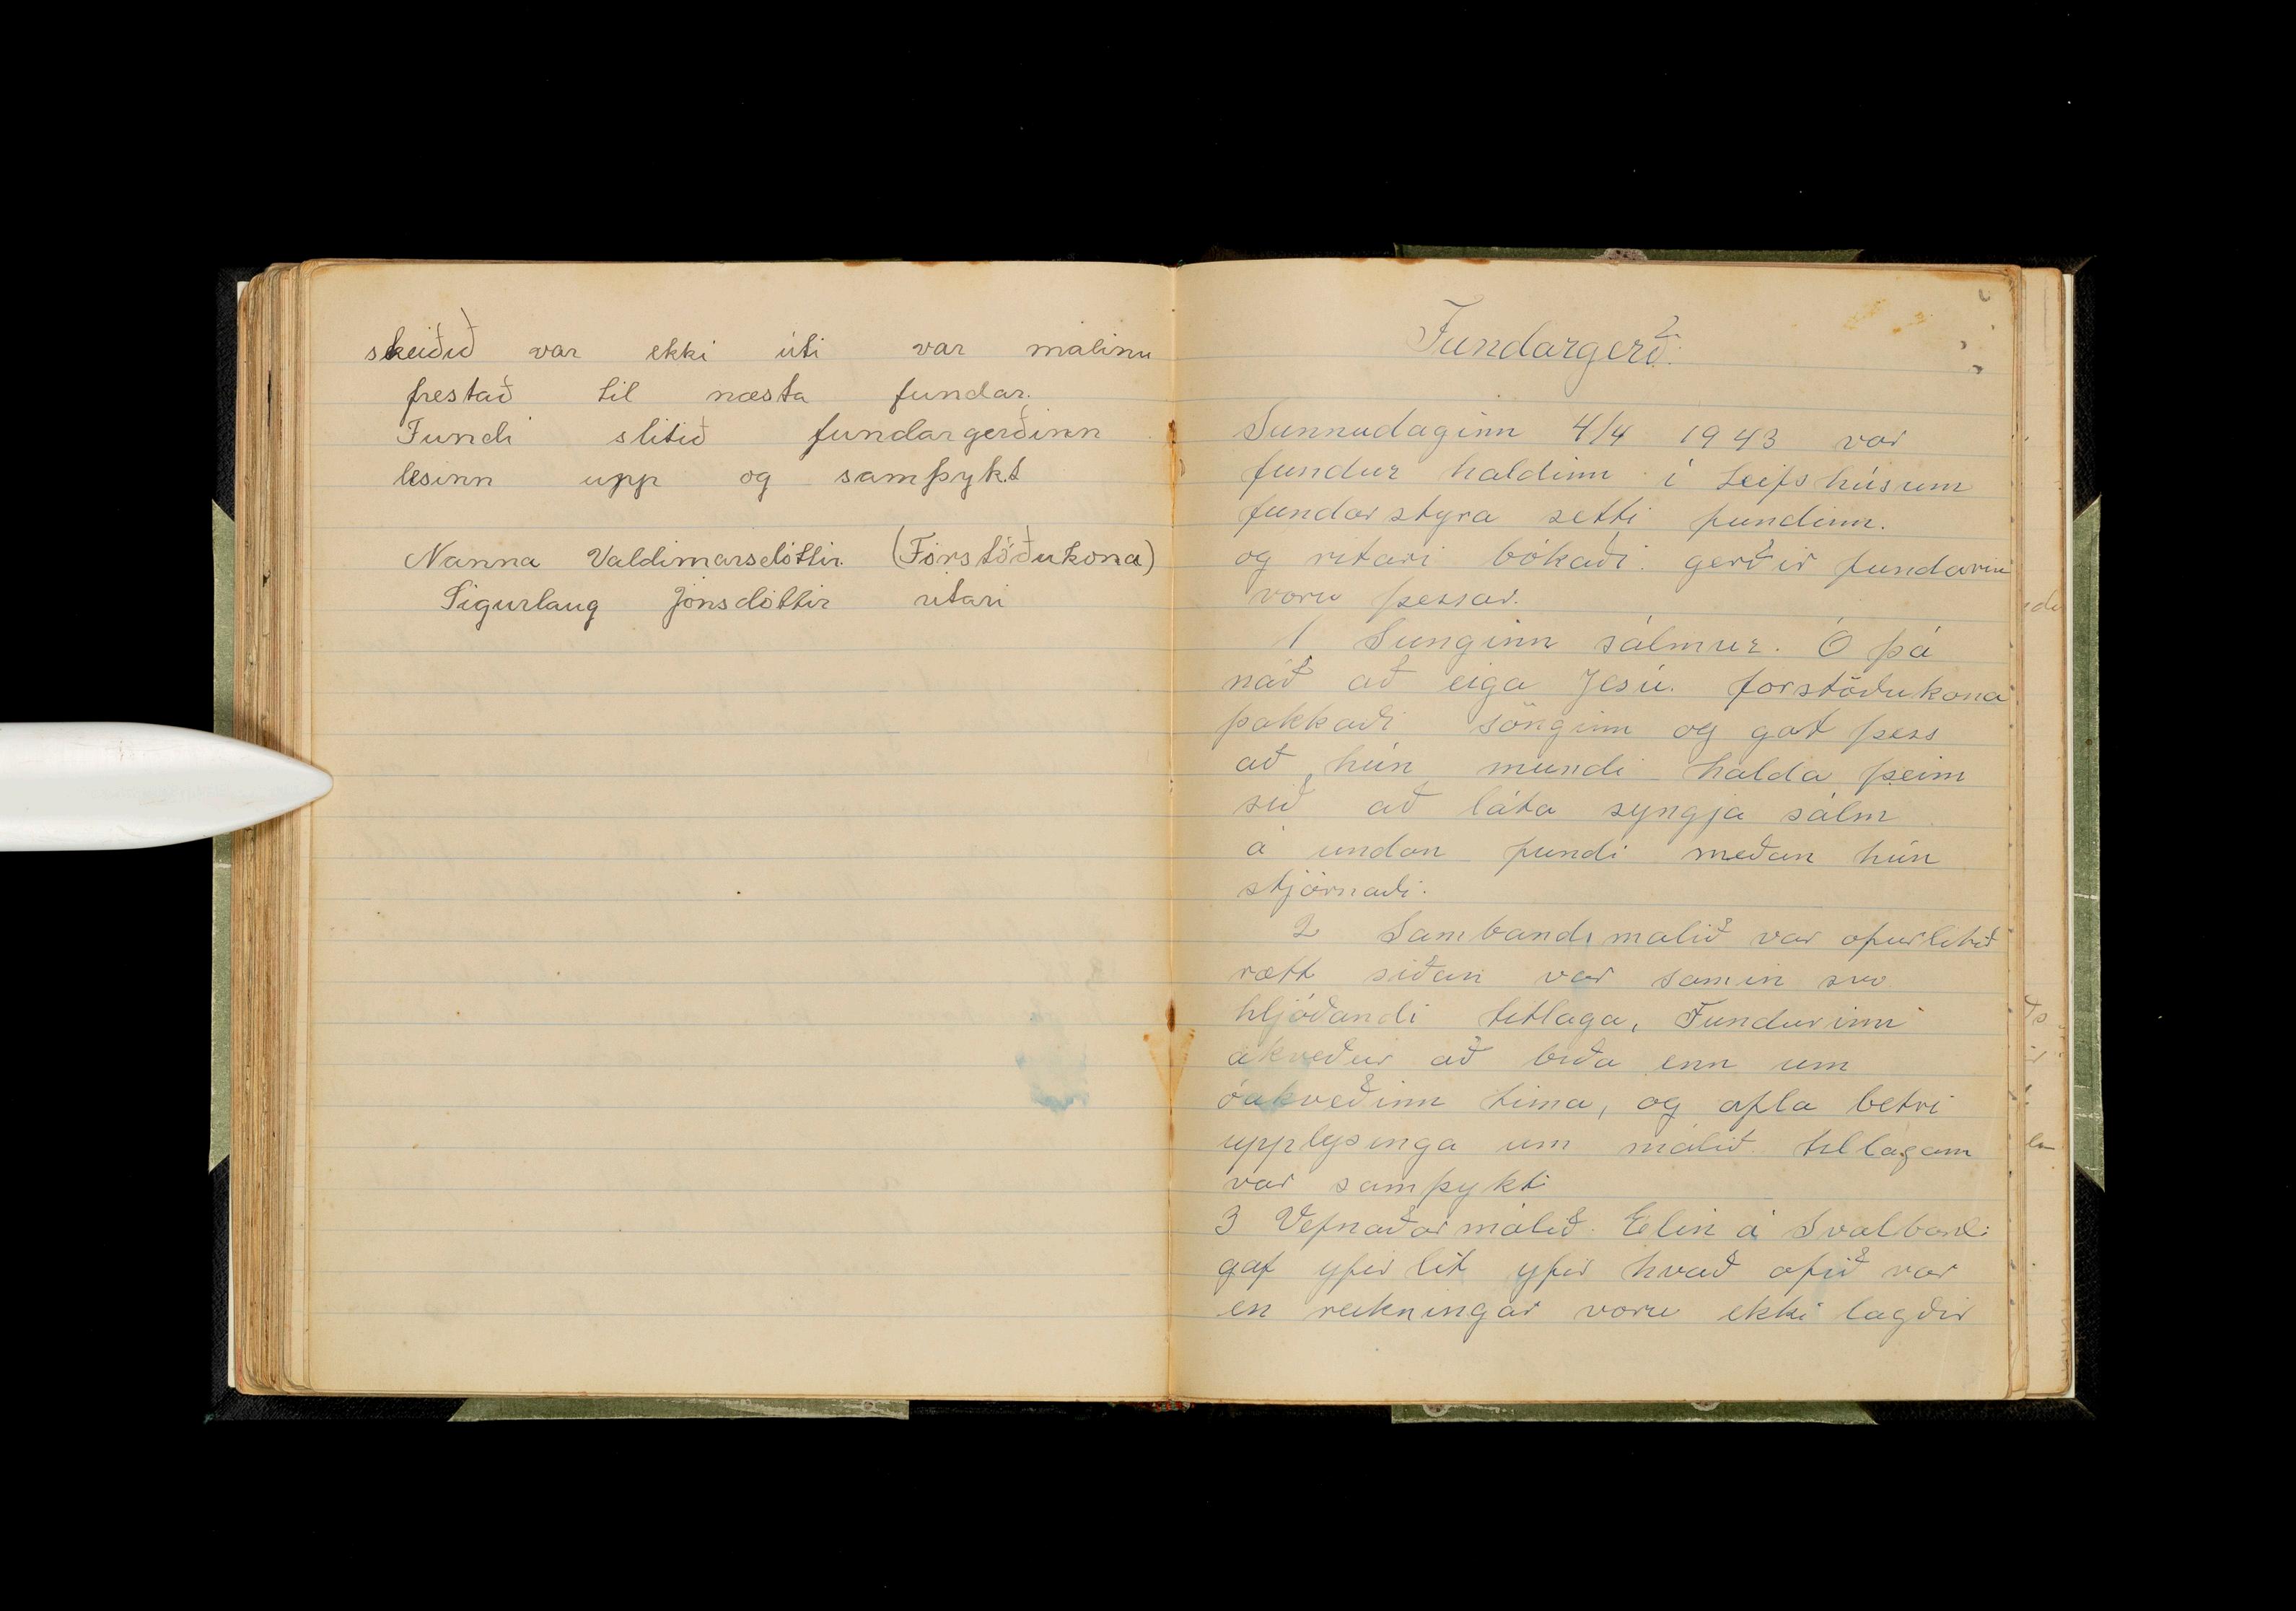 skeiðið var ekki úti var malinu
frestað til næsta fundar.
Fundi slitið fundargerðinn
lesinn upp og samþykt
Nanna Valdimarsdóttir. (Forstöðukona)
Sigurlaug Jónsdóttir ritari
Fundargerð.
Sunnudaginn 4/4 1943 var
fundur haldinn í Leifshúsum
fundarstyra setti fundinn.
og ritari bókaði. gerðir fundarin
voru þessar.
1 Sunginn sálmur. Ó þá
náð að eiga Jesú. forstöðukona
þakkaði sönginn og gat þess
að hún mundi halda þeim
sið að láta syngja sálm
á undan fundi meðan hún
stjórnaði.
2 Sambandsmalið var ofurlitið
rætt siðan var samin svo
hljóðandi tillaga, Fundurinn
ákveður að biða enn um
óákveðinn tima, og afla betri
upplysinga um málið tillagam
var samþykt
3 Vefnaðarmálið. Elin á Svalbarði
gaf yfirlit yfir hvað ofið var
en reikningar voru ekki lagðir